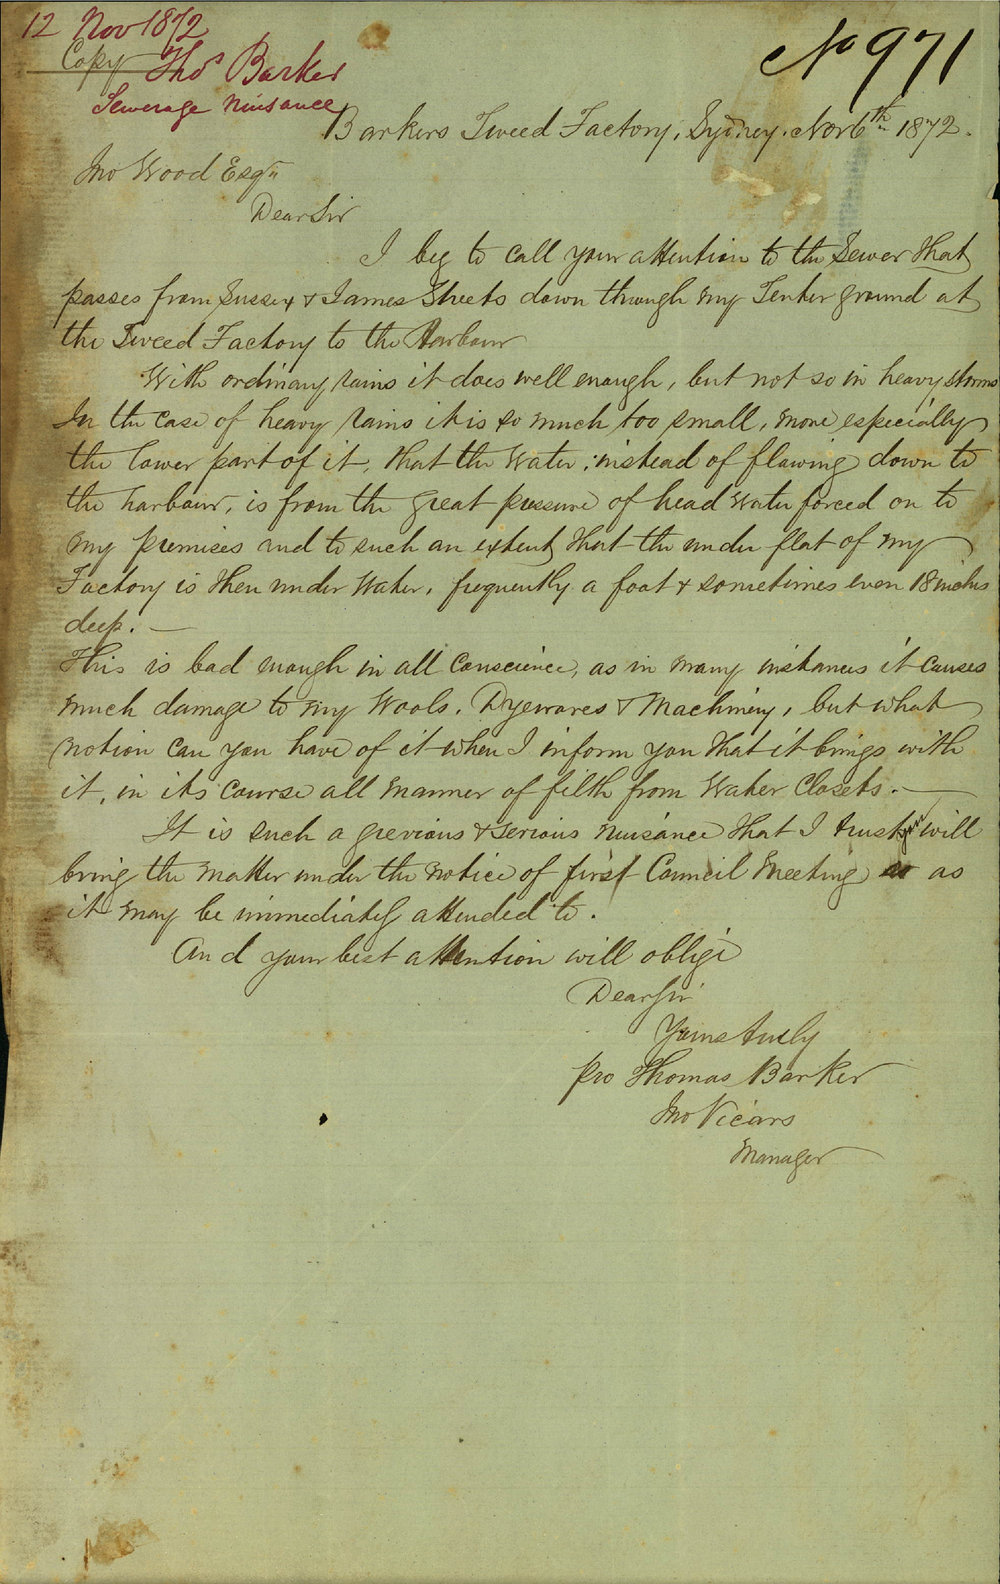 12 Nov 1872
No 971
Copy Thos Barker
Sewerage Nuisance
Barkers Tweed Factory, Sydney. Nov 6th 1872.
Jno Wood Esqr
Dear Sir
I beg to call your attention to the Sewer that
passes from Sussex & James Streets down through my Tenter ground at
the Tweed Factory to the Harbour
With ordinary rains it does well enough, but not so in heavy storms
In the case of heavy rains it is so much too small, more especially
the lower part of it, that the Water, instead of flowing down to
the harbour, is from the great pressure of head water forced on to
my premises and to such an extent that the under flat of my
Factory is then under water, frequently a foot & sometimes even 18 inches
deep. —
This is bad enough in all Conscience, as in many instances it causes
much damage to my Wools, Dyewares & Machinery, but what
notion can you have of it when I inform you that it brings with
it, in its course all manner of filth from Water Closets. —
It is such a grevious & serious nuisance that I trust you will
bring the matter under the notice of first Council Meeting as
it may be immediately attended to.
And your best attention will oblige
Dear Sir
Yours truly
pro Thomas Barker
Jno Vicars
Manager